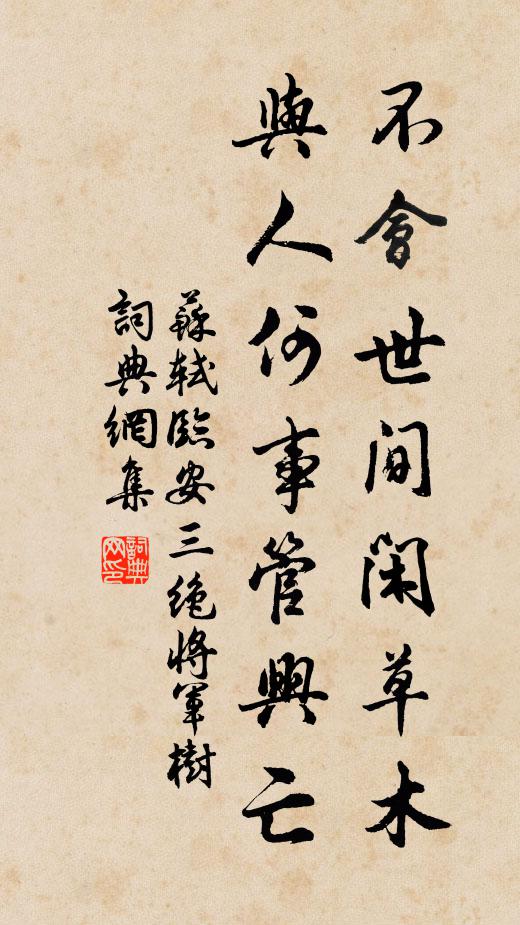 不會世間閑草木
與人何事管興亡
蘇軾臨安三絕將軍樹
詞典網集
詞典网印